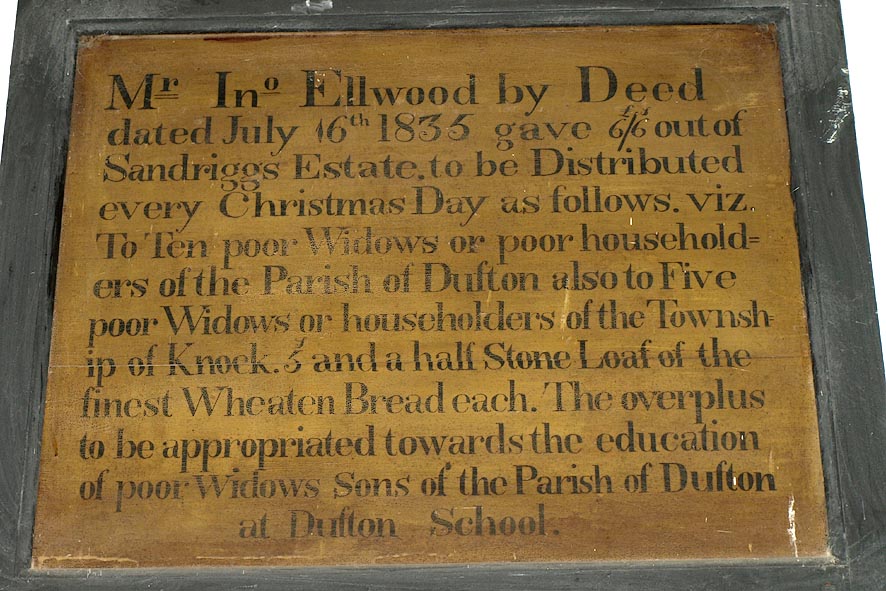 Mr Jno Ellwood by Deed
dated July 16th 1835 gave £6/6s out of
Sandriggs Estate, to be Distributed
every Christmas Day as follows. viz.
To Ten poor Widows or poor household=
ers of the Parish of Dufton also to Five
poor Widows or householders of the Townsh-
ip of Knock. 5s and a half Stone Loaf of the
finest Wheaten Bread each. The overplus
to be appropriated towards the education
of poor Widows Sons of the Parish of Dufton
at Dufton School.